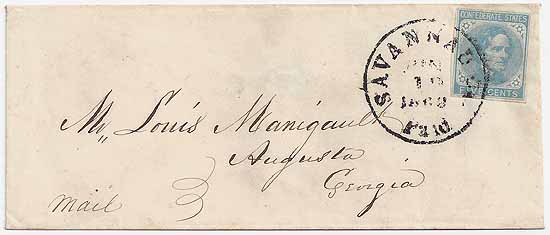 CONFEDERATE STATES
FIVE CENTS
SAVANNAH
Paid
Mr. Louis Manigault
Augusta
Georgia
Mail